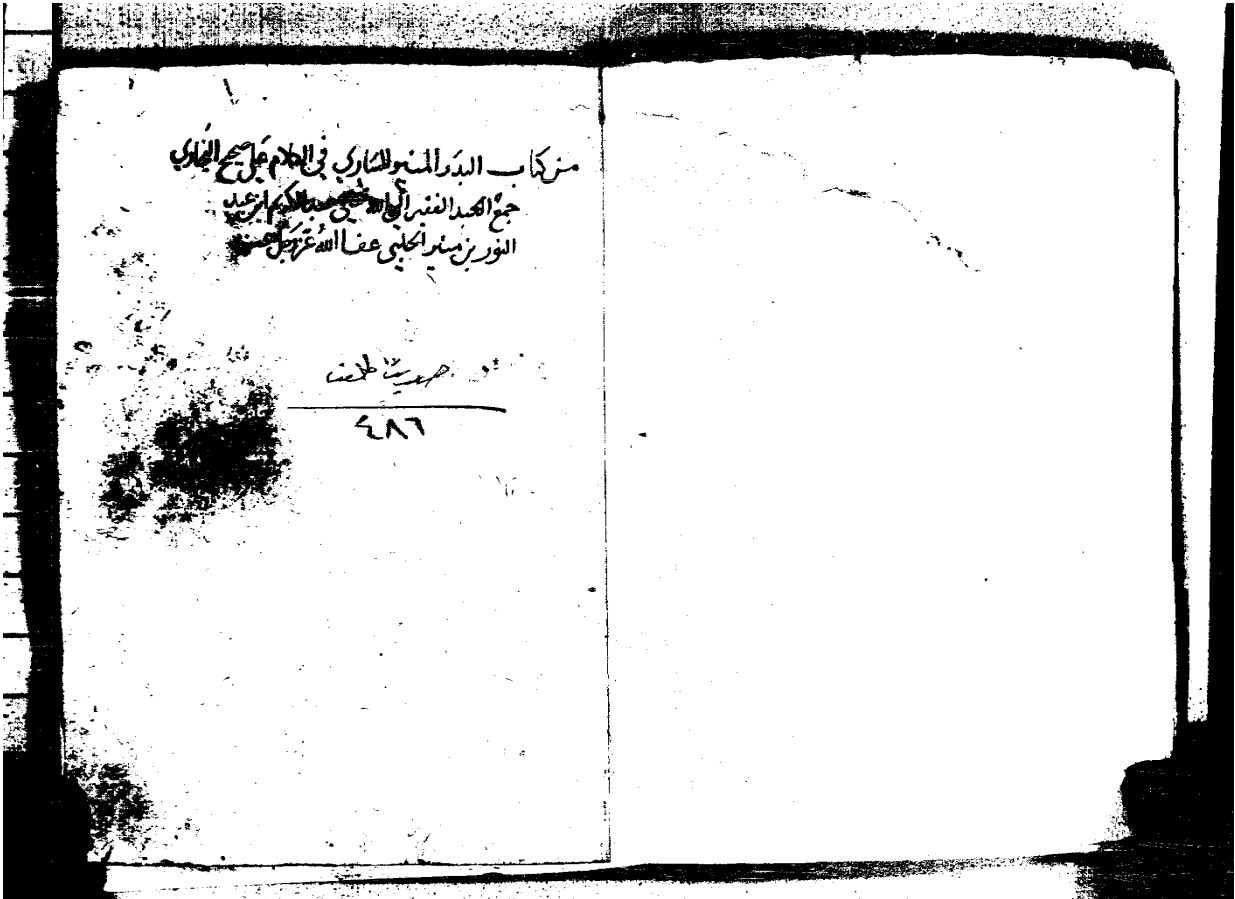 من كتاب البدر المنير الساري في الكلام على صحيح البخاري
جمع العبد الفقير الى الله عبد الكريم ابن عبد
النور بن منير الحلبي عفا الله عز وجل عنه
حديث
٤٨٦